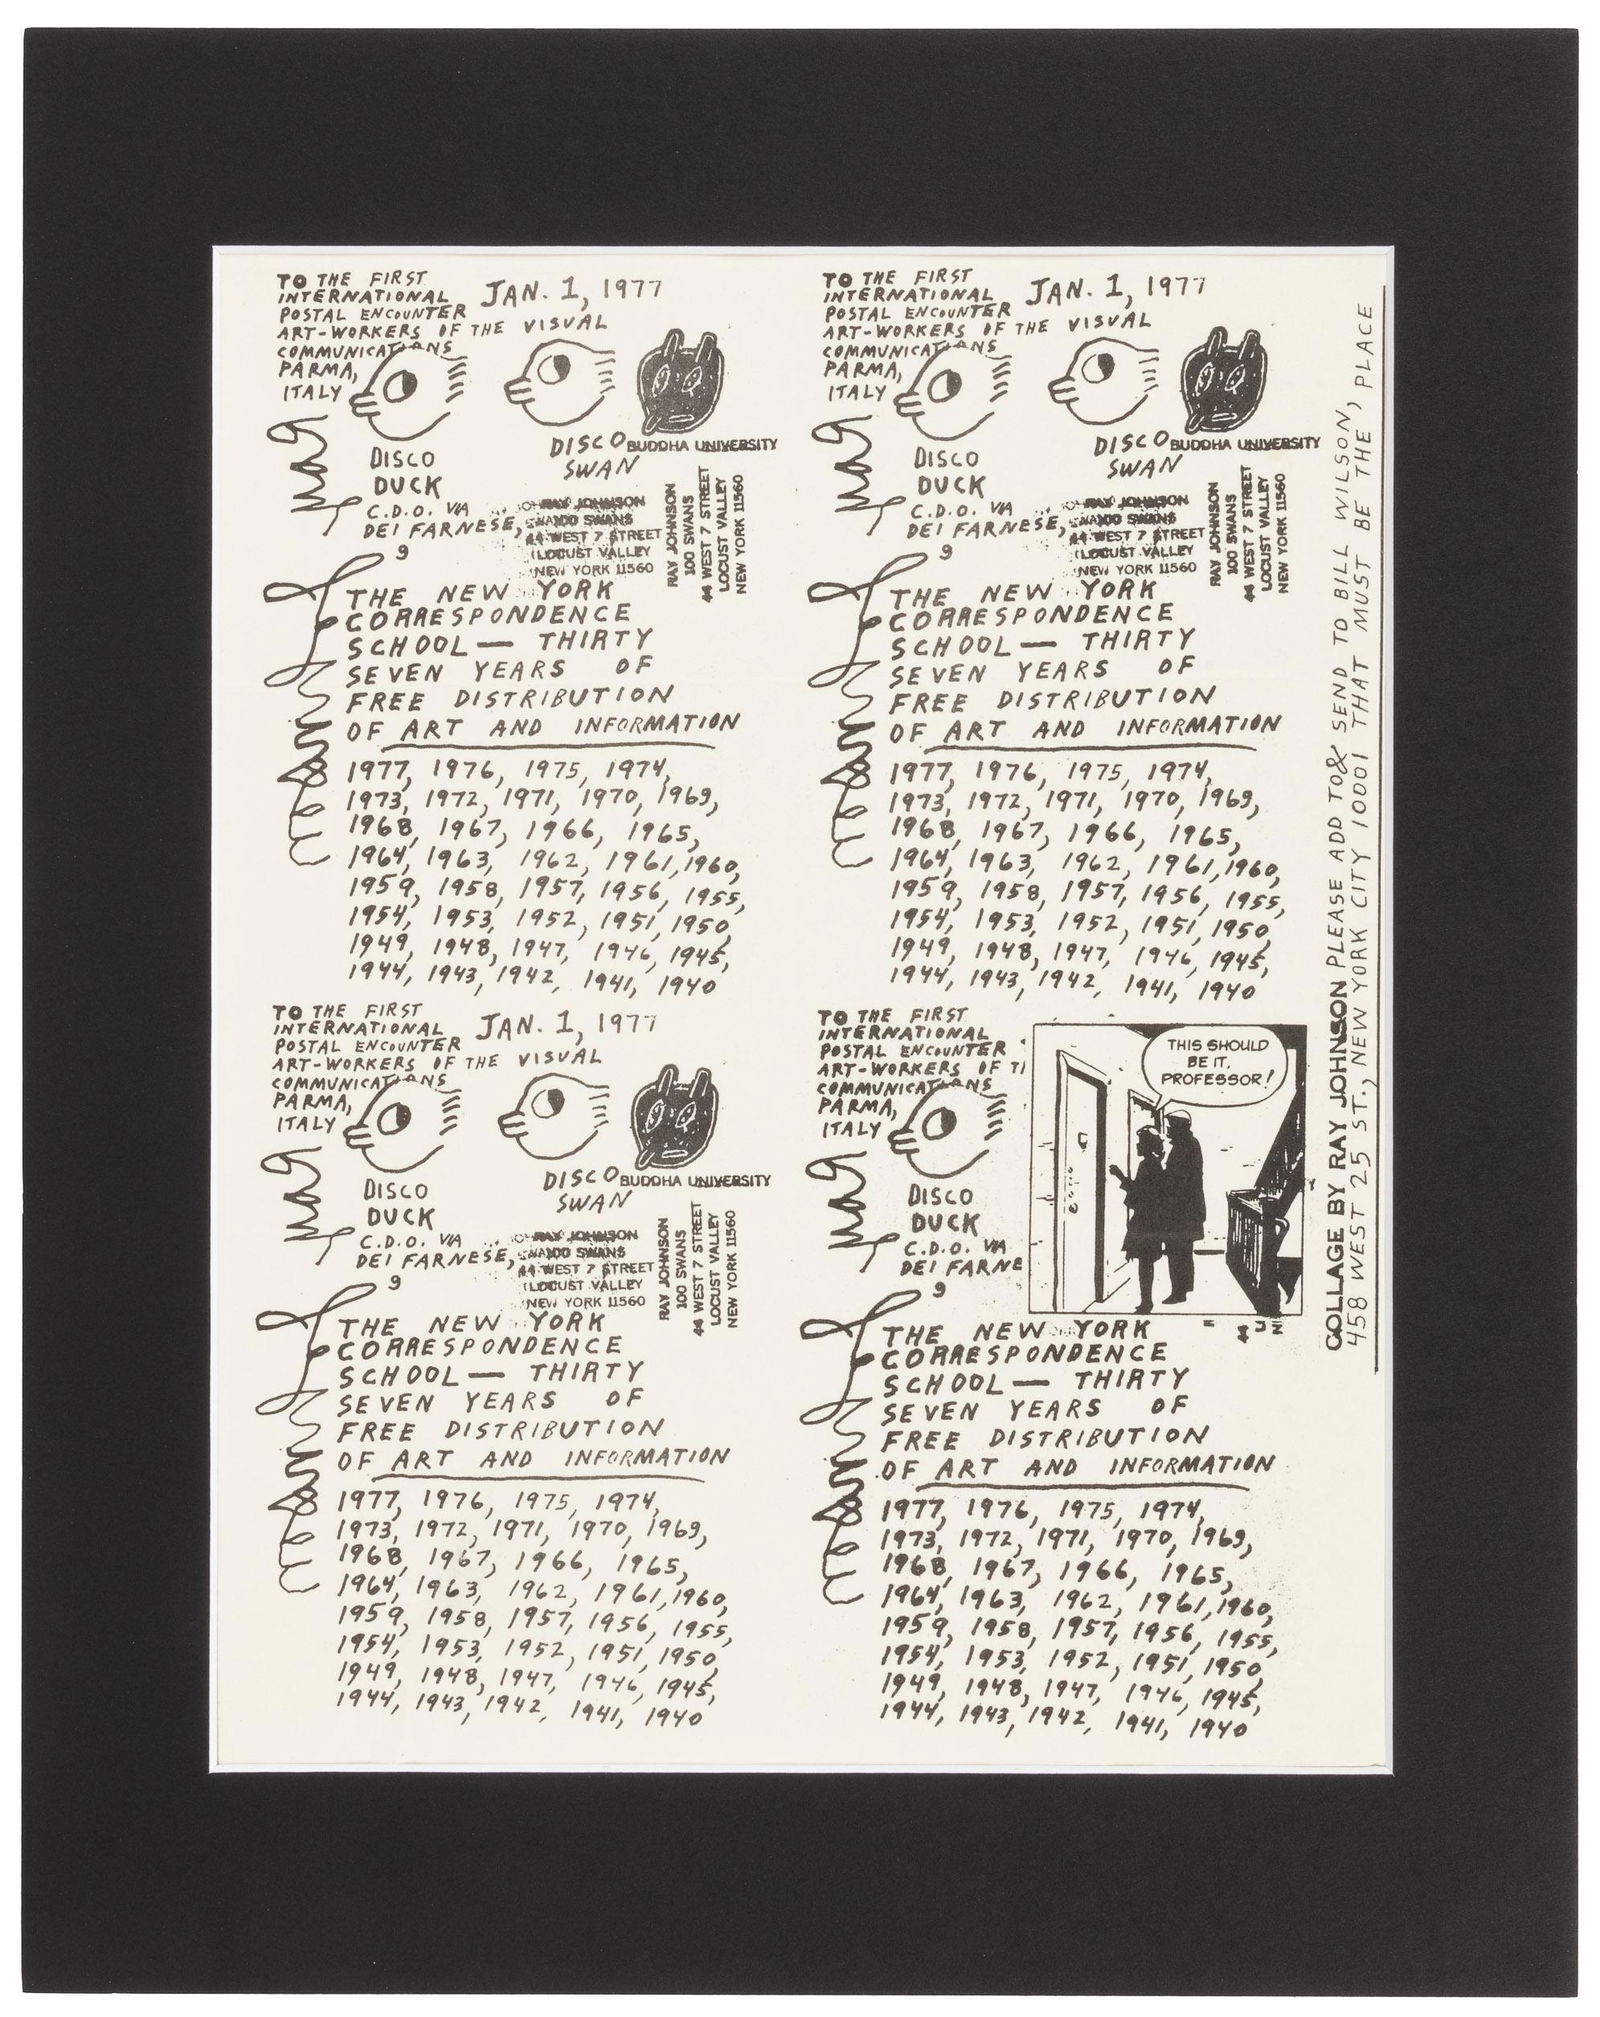 TO THE FIRST
INTERNATIONAL
POSTAL ENCOUNTER
ART-WORKERS OF THE VISUAL
COMMUNICATIONS
PARMA,
ITALY
JAN. 1, 1977
DISCO
DUCK
DISCO
SWAN
BUDDHA UNIVERSITY
C.D.O. VIA
DEI FARNESE,
9
RAY JOHNSON
100 SWANS
44 WEST 7 STREET
LOCUST VALLEY
NEW YORK 11560
RAY JOHNSON
100 SWANS
44 WEST 7 STREET
LOCUST VALLEY
NEW YORK 11560
THE NEW YORK
CORRESPONDENCE
SCHOOL — THIRTY
SEVEN YEARS OF
FREE DISTRIBUTION
OF ART AND INFORMATION
1977, 1976, 1975, 1974,
1973, 1972, 1971, 1970, 1969,
1968, 1967, 1966, 1965,
1964, 1963, 1962, 1961, 1960,
1959, 1958, 1957, 1956, 1955,
1954, 1953, 1952, 1951, 1950,
1949, 1948, 1947, 1946, 1945,
1944, 1943, 1942, 1941, 1940
TO THE FIRST
INTERNATIONAL
POSTAL ENCOUNTER
ART-WORKERS OF THE VISUAL
COMMUNICATIONS
PARMA,
ITALY
JAN. 1, 1977
DISCO
DUCK
DISCO
SWAN
BUDDHA UNIVERSITY
C.D.O. VIA
DEI FARNESE,
9
RAY JOHNSON
100 SWANS
44 WEST 7 STREET
LOCUST VALLEY
NEW YORK 11560
RAY JOHNSON
100 SWANS
44 WEST 7 STREET
LOCUST VALLEY
NEW YORK 11560
THE NEW YORK
CORRESPONDENCE
SCHOOL — THIRTY
SEVEN YEARS OF
FREE DISTRIBUTION
OF ART AND INFORMATION
1977, 1976, 1975, 1974,
1973, 1972, 1971, 1970, 1969,
1968, 1967, 1966, 1965,
1964, 1963, 1962, 1961, 1960,
1959, 1958, 1957, 1956, 1955,
1954, 1953, 1952, 1951, 1950,
1949, 1948, 1947, 1946, 1945,
1944, 1943, 1942, 1941, 1940
TO THE FIRST
INTERNATIONAL
POSTAL ENCOUNTER
ART-WORKERS OF THE VISUAL
COMMUNICATIONS
PARMA,
ITALY
JAN. 1, 1977
DISCO
DUCK
DISCO
SWAN
BUDDHA UNIVERSITY
C.D.O. VIA
DEI FARNESE,
9
RAY JOHNSON
100 SWANS
44 WEST 7 STREET
LOCUST VALLEY
NEW YORK 11560
RAY JOHNSON
100 SWANS
44 WEST 7 STREET
LOCUST VALLEY
NEW YORK 11560
THE NEW YORK
CORRESPONDENCE
SCHOOL — THIRTY
SEVEN YEARS OF
FREE DISTRIBUTION
OF ART AND INFORMATION
1977, 1976, 1975, 1974,
1973, 1972, 1971, 1970, 1969,
1968, 1967, 1966, 1965,
1964, 1963, 1962, 1961, 1960,
1959, 1958, 1957, 1956, 1955,
1954, 1953, 1952, 1951, 1950,
1949, 1948, 1947, 1946, 1945,
1944, 1943, 1942, 1941, 1940
TO THE FIRST
INTERNATIONAL
POSTAL ENCOUNTER
ART-WORKERS OF T
COMMUNICATIONS
PARMA,
ITALY
DISCO
DUCK
C.D.O. VIA
DEI FARNE
9
THIS SHOULD
BE IT,
PROFESSOR!
THE NEW YORK
CORRESPONDENCE
SCHOOL — THIRTY
SEVEN YEARS OF
FREE DISTRIBUTION
OF ART AND INFORMATION
1977, 1976, 1975, 1974,
1973, 1972, 1971, 1970, 1969,
1968, 1967, 1966, 1965,
1964, 1963, 1962, 1961, 1960,
1959, 1958, 1957, 1956, 1955,
1954, 1953, 1952, 1951, 1950,
1949, 1948, 1947, 1946, 1945,
1944, 1943, 1942, 1941, 1940
COLLAGE BY RAY JOHNSON PLEASE ADD TO & SEND TO BILL WILSON,
458 WEST 25 ST., NEW YORK CITY 10001 THAT MUST BE THE PLACE